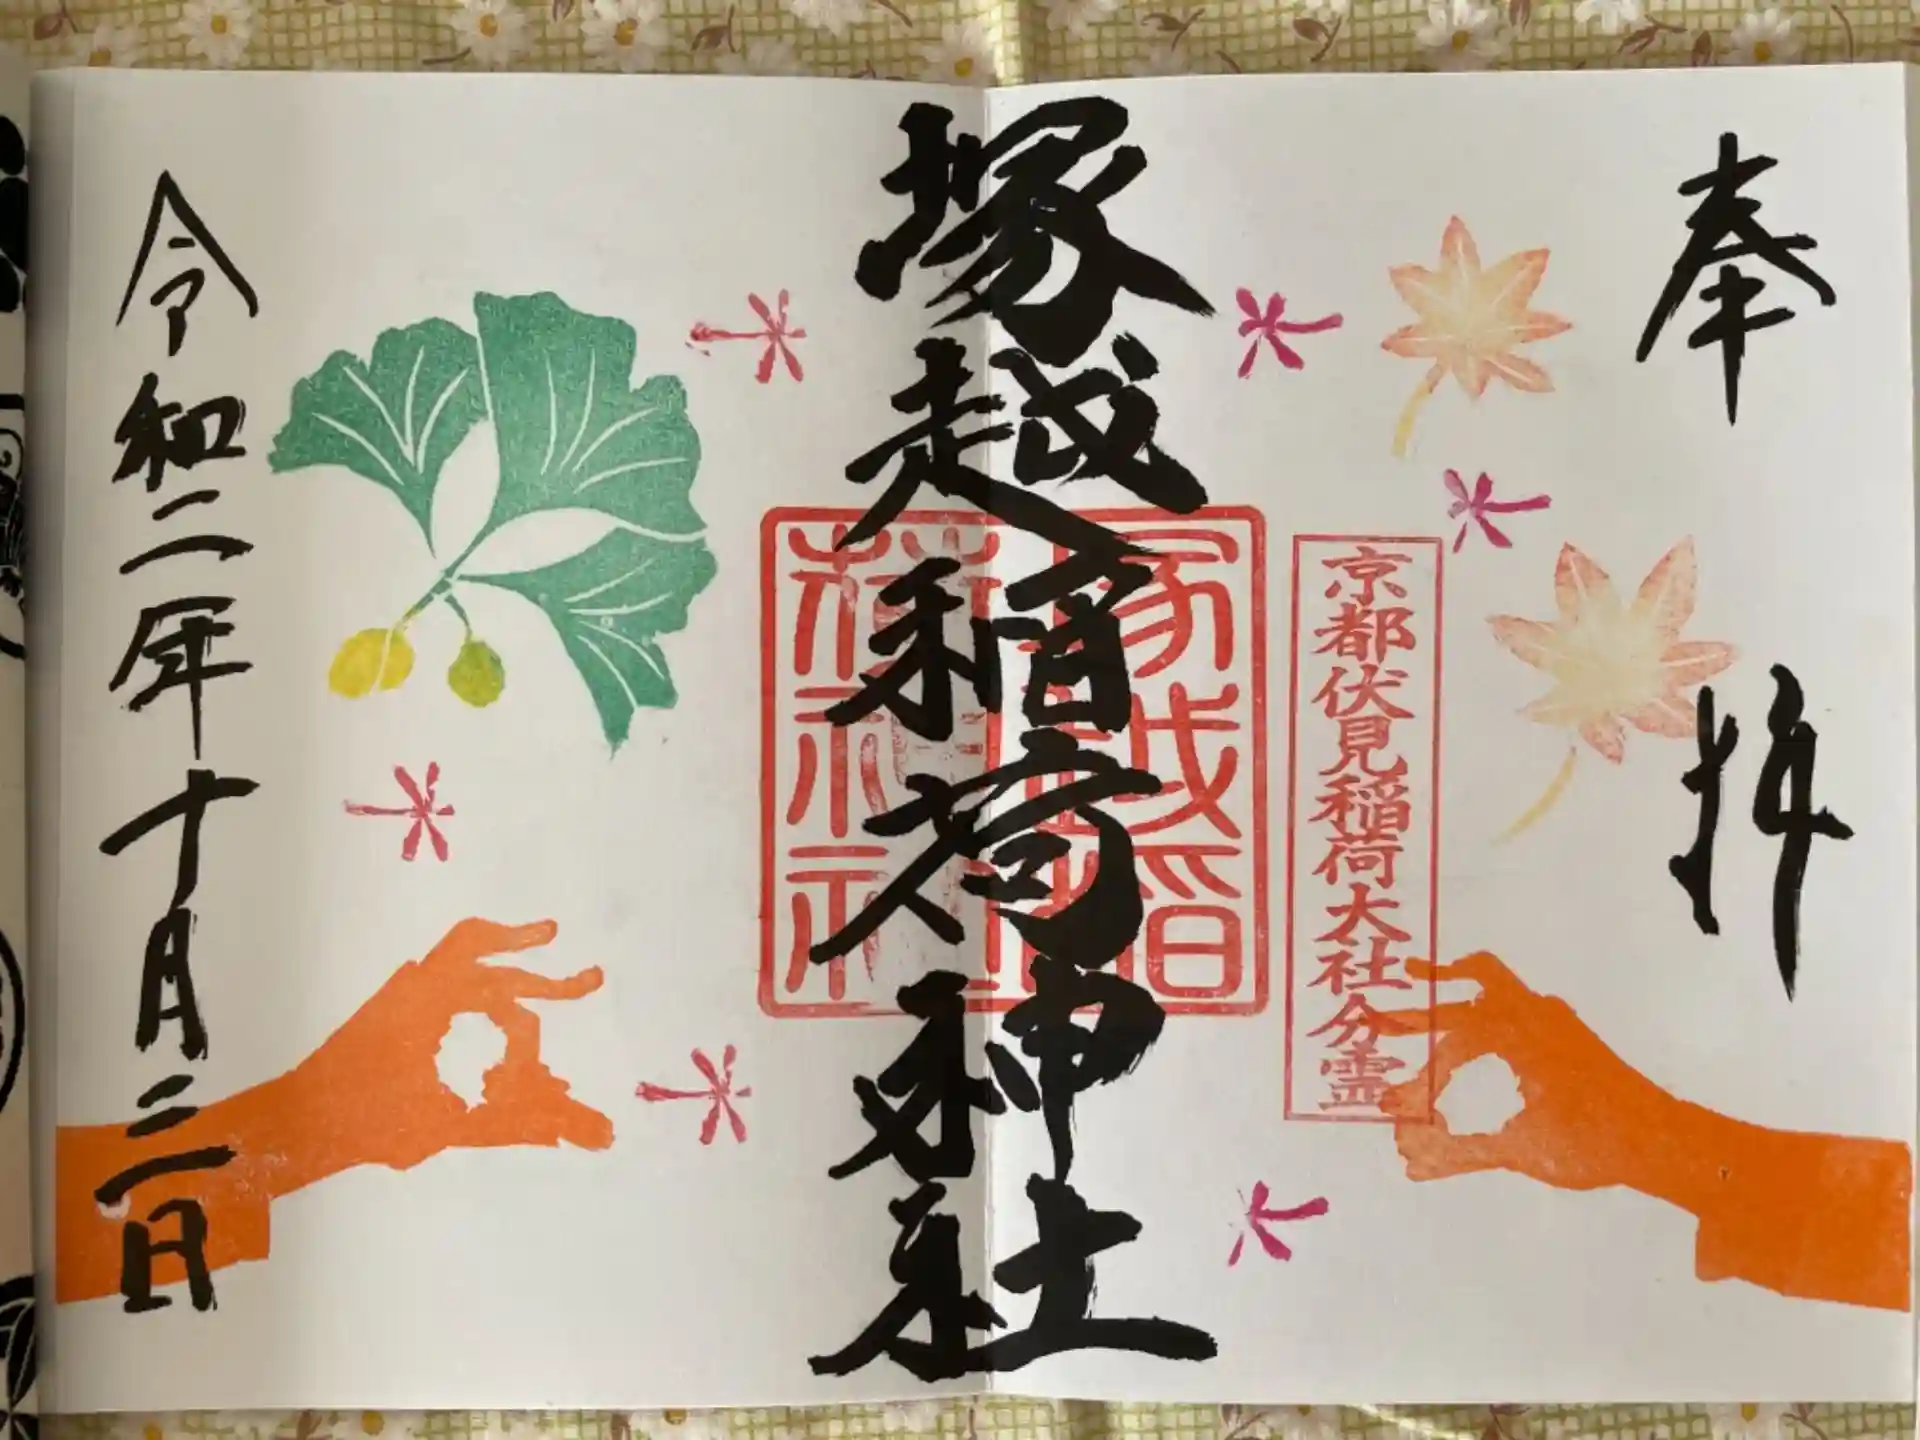 奉拝
京都伏見稲荷大社分霊
塚越稲荷神社
塚越稲
荷神社
令和二年十月二日